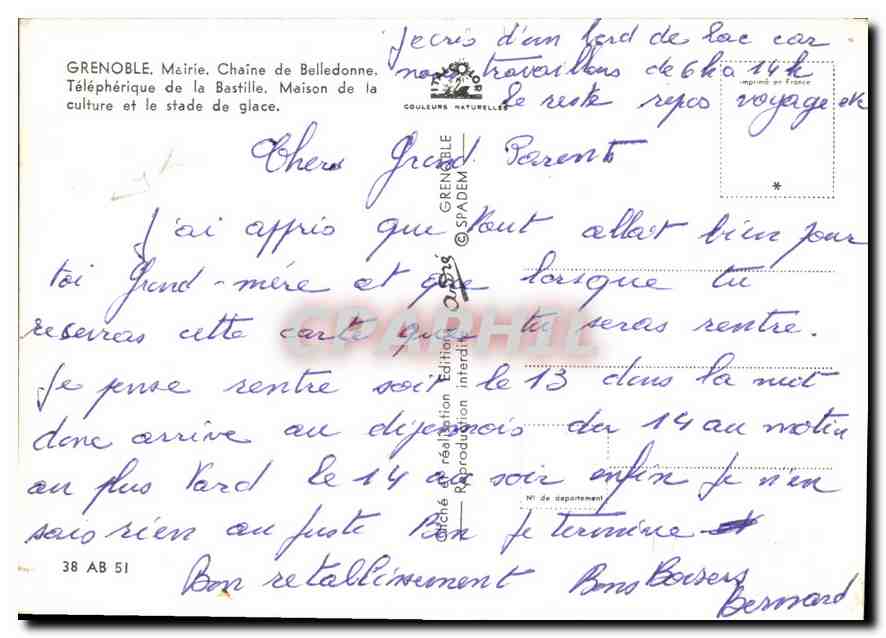 j'ecris d'un bord de lac car
nous travaillons de 6h à 14h
le reste repos voyage etc
GRENOBLE. Mairie. Chaîne de Belledonne.
Téléphérique de la Bastille. Maison de la
culture et le stade de glace.
COULEURS NATURELLES
imprimé en France
*
Chers Grand Parents
J'ai appris que tout allait bien pour
toi Grand-mère et que lorsque tu
recevras cette carte que tu seras rentre.
Je pense rentre soit le 13 dans la nuit
donc arrive au dijeunois du 14 au matin
au plus tard le 14 au soir enfin je n'en
sais rien au juste Bon je termine
Bon retablissement Bons Baisers
Bernard
Cliché et réalisation Editions André GRENOBLE
Reproduction interdite © SPADEM
N° de département
38 AB 51
CPAPHIL